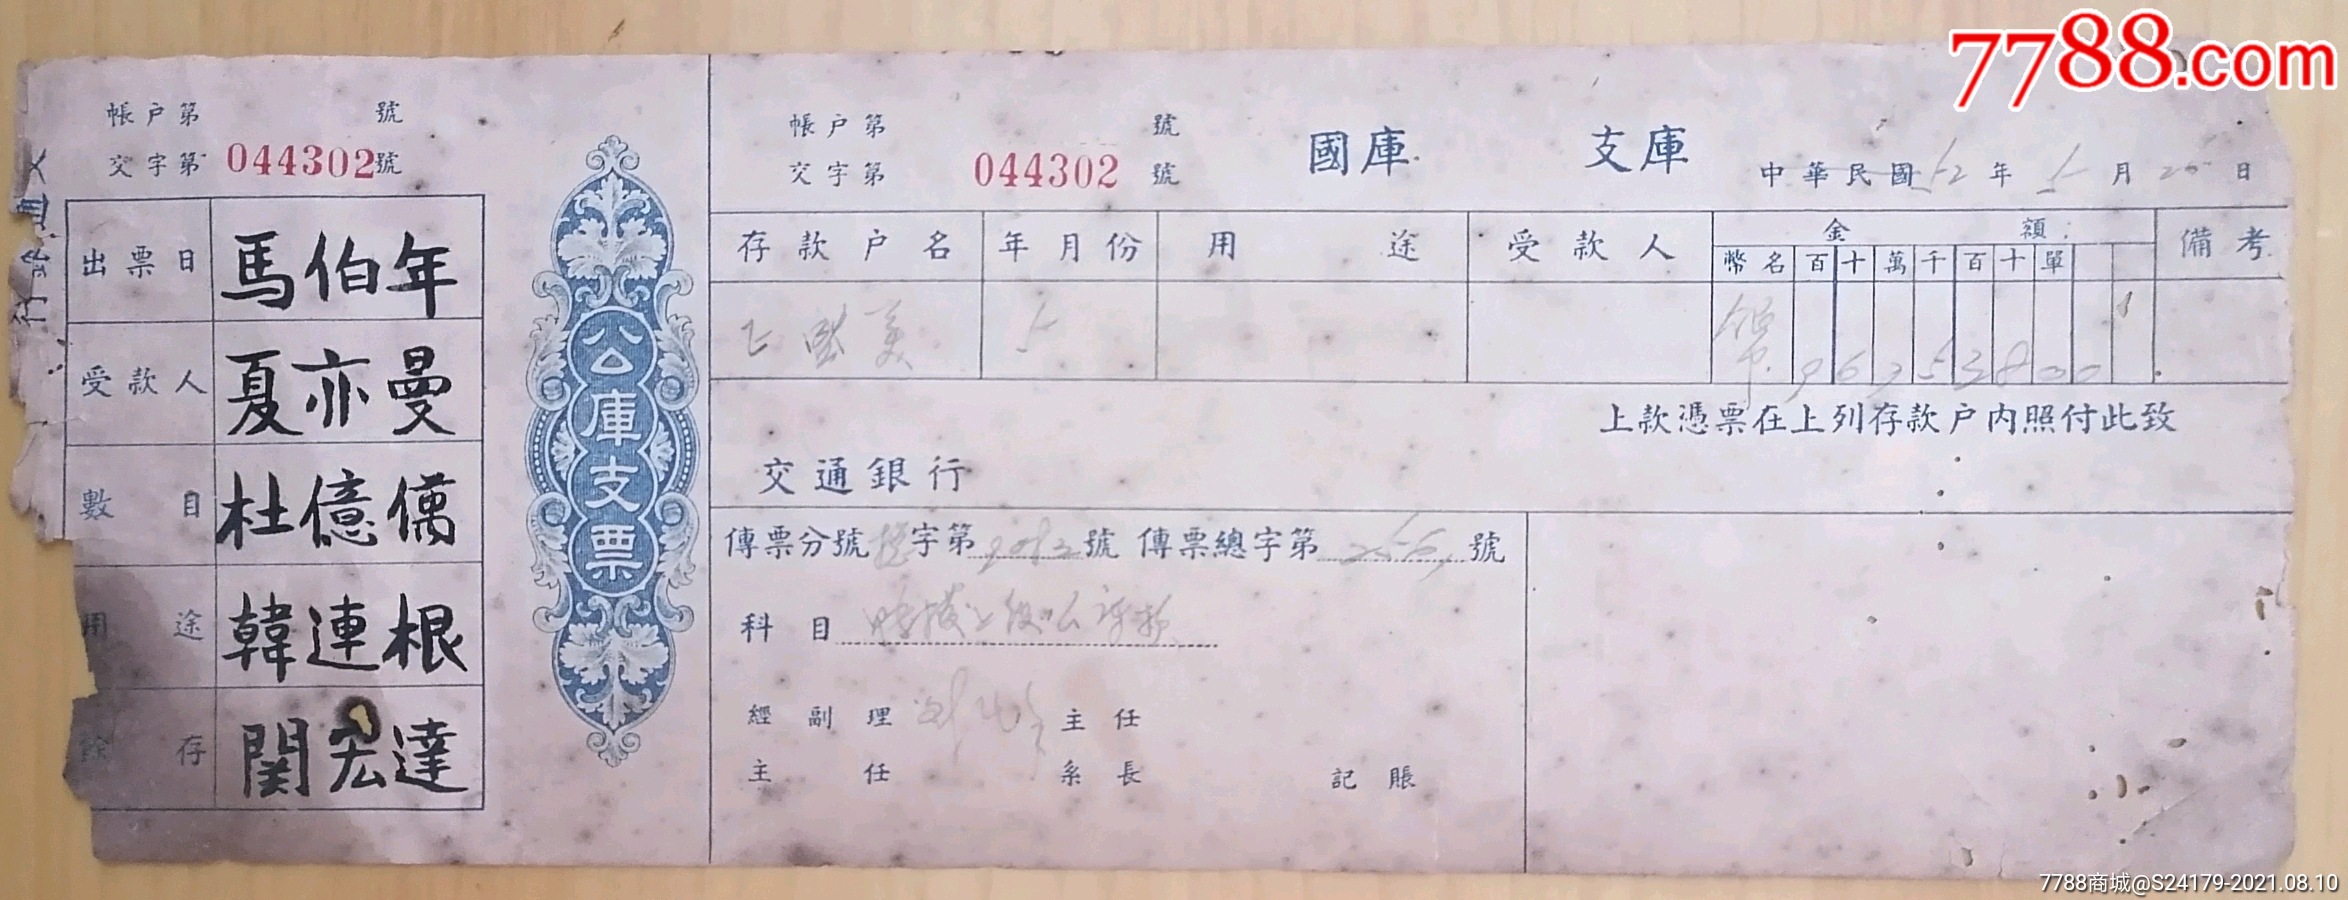 7788.com
帳户第 號
交字第 044302號
出票日 馬伯年
受款人 夏亦曼
數目 杜億儒
用途 韓連根
餘存 閏宏達
公庫支票
帳户第 號
交字第 044302 號
國庫 支庫
中華民國 年 月 日
存款户名 年月份 用途 受款人 金額 備考
幣名 百 十 萬 千 百 十 單
上款憑票在上列存款户内照付此致
交通銀行
傳票分號 字第 號 傳票總字第 號
科目
經副理 主任
主任 系長 記賬
7788商城@S24179-2021.08.10